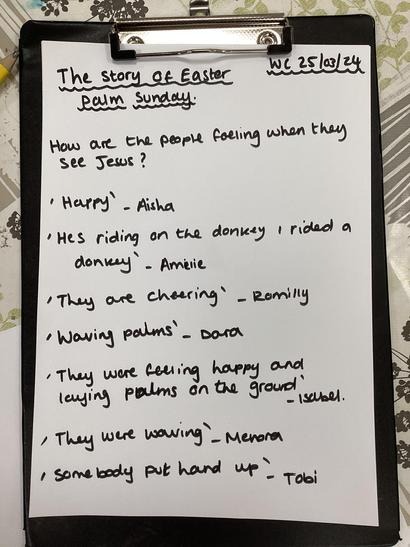 The Story of Easter
WC 25/03/24
Palm Sunday.
How are the people feeling when they
see Jesus?
'Happy' - Aisha
'Hes riding on the donkey I rided a
donkey' - Amelie
'They are cheering' - Romilly
'Waving palms' - Dara
'They were feeling happy and
laying palms on the ground'
- Isabel.
'They were waving' - Menora
'Somebody put hand up' - Tobi